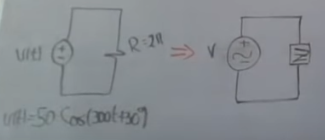 V(t)
R=2Ω
⇒
V
V(t)=50 Cos(300t+30°)